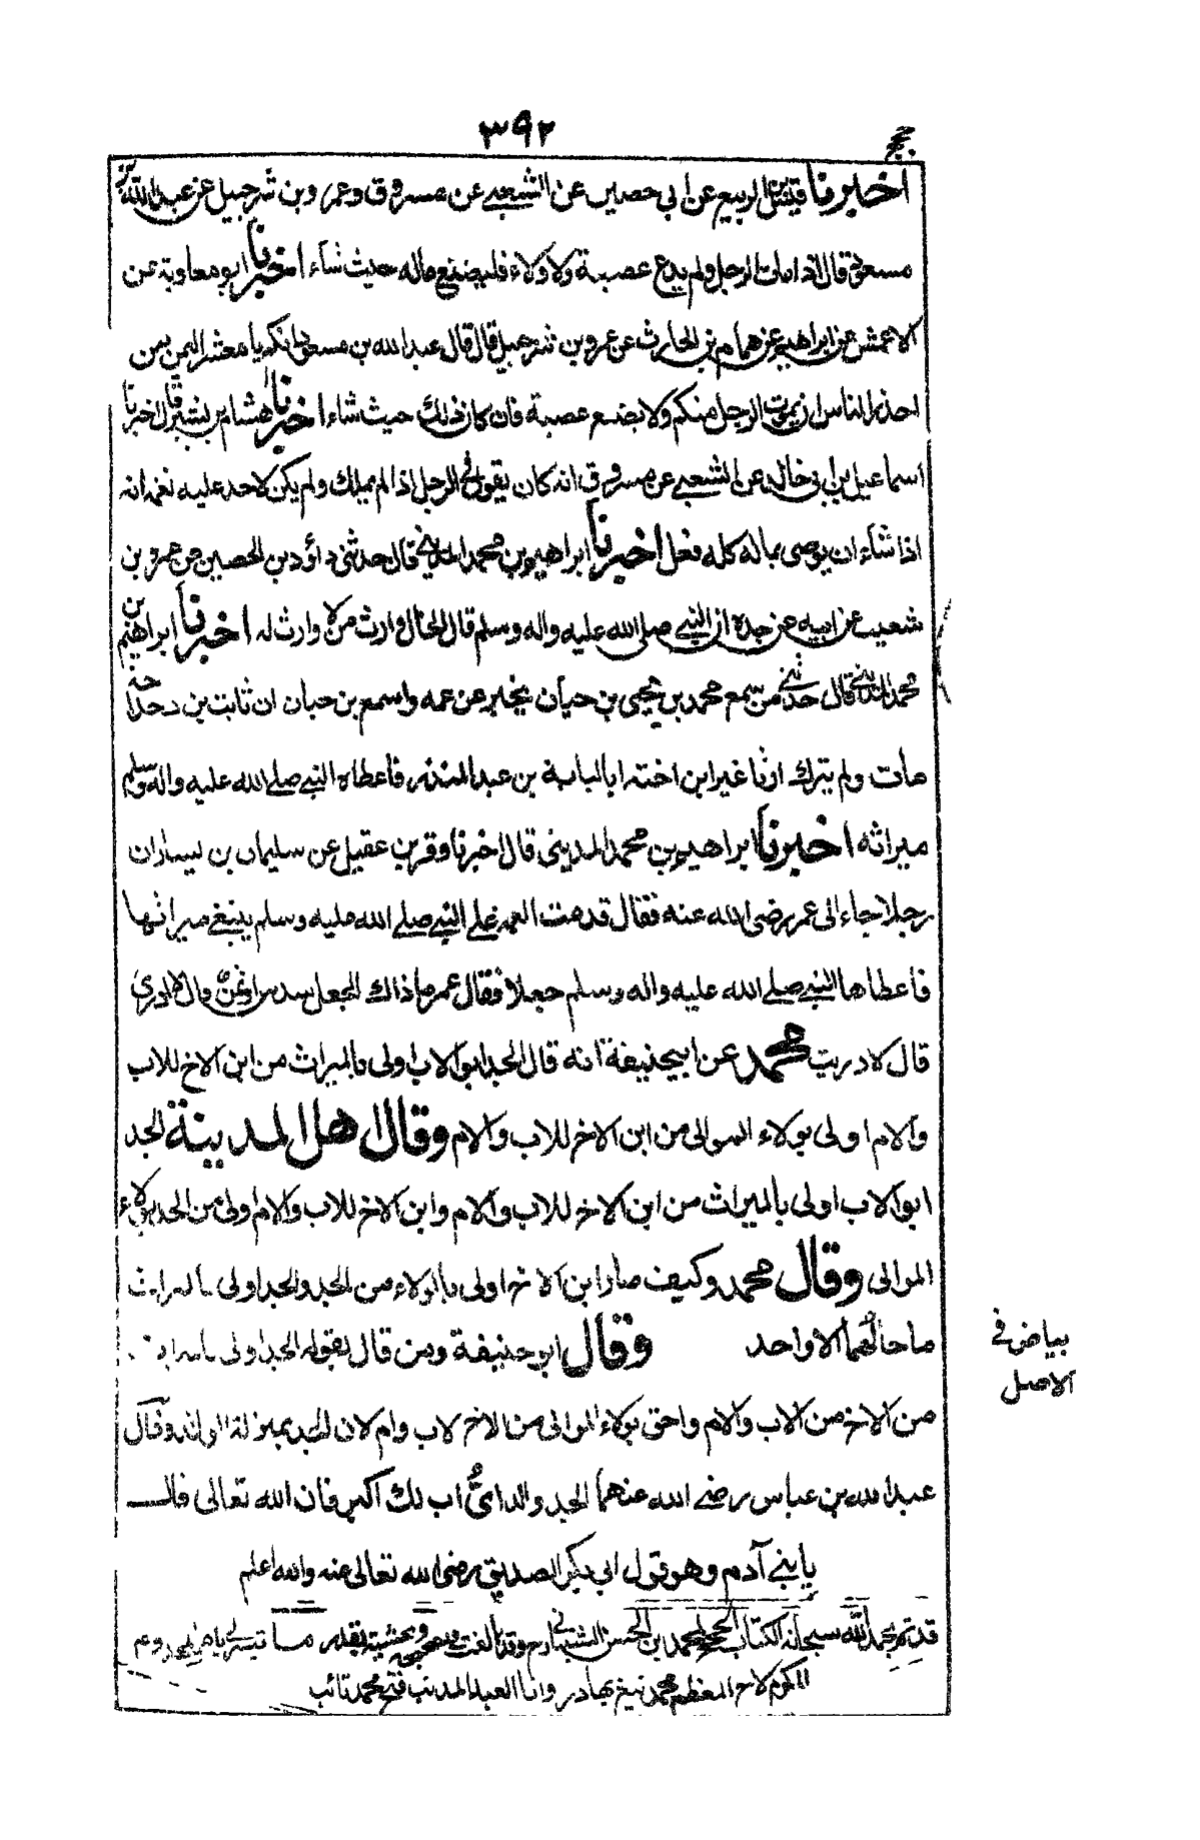 ٣٩٢
حجج
اخبرنا قيس بن الربيع عن ابي حصين عن الشعبي عن مسروق وعمرو بن شرحبيل عن عبد الله بن
مسعود قال اذا مات الرجل ولم يدع عصبة ولا ولاء فليضع ماله حيث شاء اخبرنا ابو معاوية عن
الاعمش عن ابراهيم عن همام بن الحارث عن عمرو بن شرحبيل قال قال عبد الله بن مسعود انكم يا معشر اليمن من
احذر الناس ان يموت الرجل منكم ولا يضع عصبة فان كان ذلك حيث شاء اخبرنا هشام بن بشير قال اخبرنا
اسماعيل بن ابي خالد عن الشعبي عن مسروق انه كان يقول في الرجل اذا لم يملك ولم يكن لاحد عليه نعمه انه
اذا شاء ان يوصى بماله كله فعل اخبرنا ابراهيم بن محمد المديني قال حدثني داؤد بن الحصين عن عمرو بن
شعيب عن ابيه عن جده ان النبي صلى الله عليه واله وسلم قال الخال وارث من لا وارث له اخبرنا ابراهيم بن
محمد المديني قال حدثني من سمع محمد بن يحيى بن حيان يخبر عن عمه واسمع بن حبان ان ثابت بن دحداحة
مات ولم يترك ارثا غير ابن اخته ابا لبابة بن عبد المنذر فاعطاه النبي صلى الله عليه واله وسلم
ميراثه اخبرنا ابراهيم بن محمد المديني قال اخبرنا وقر بن عقيل عن سليمان بن يسار ان
رجلا جاء الى عمر رضى الله عنه فقال قدمت العمة على النبي صلى الله عليه وسلم يبتغي ميراثها
فاعطاها النبي صلى الله عليه واله وسلم جعلا فقال عمر ما ذاك الجعل سدس او ثمن قال لا ادرى
قال لا دريت محمد عن ابي حنيفة انه قال الجد ابو الاب اولى بالميراث من ابن الاخ للاب
والام اولى بولاء الموالى من ابن الاخ للاب والام وقال اهل المدينة الجد
ابو الاب اولى بالميراث من ابن الاخ للاب والام وابن الاخ للاب والام اولى من الجد بولاء
الموالى وقال محمد وكيف صار ابن الاخ اولى بالولاء من الجد والجد اولى بالميراث
ما حالهما الا واحد وقال ابو حنيفة ومن قال بقوله الجد اولى بالميراث
من الاخ من الاب والام واحق بولاء الموالى من الاخ لاب وام لان الجد بمنزلة الوالد وقال
عبد الله بن عباس رضى الله عنهما الجد والد اىُّ اب لك اكبر فان الله تعالى قال
يا بني آدم وهو قول ابي بكر الصديق رضى الله تعالى عنه والله اعلم
بياض في
الاصل
قد تم بحمد الله سبحانه الكتاب الحجج لمحمد بن الحسن الشيباني وقد بالغت في تصحيحه وتحشيته بقدر ما تيسر لي
المكرم الاخ المعظم محمد تيغ بهادر وانا العبد المذنب فتح محمد تائب